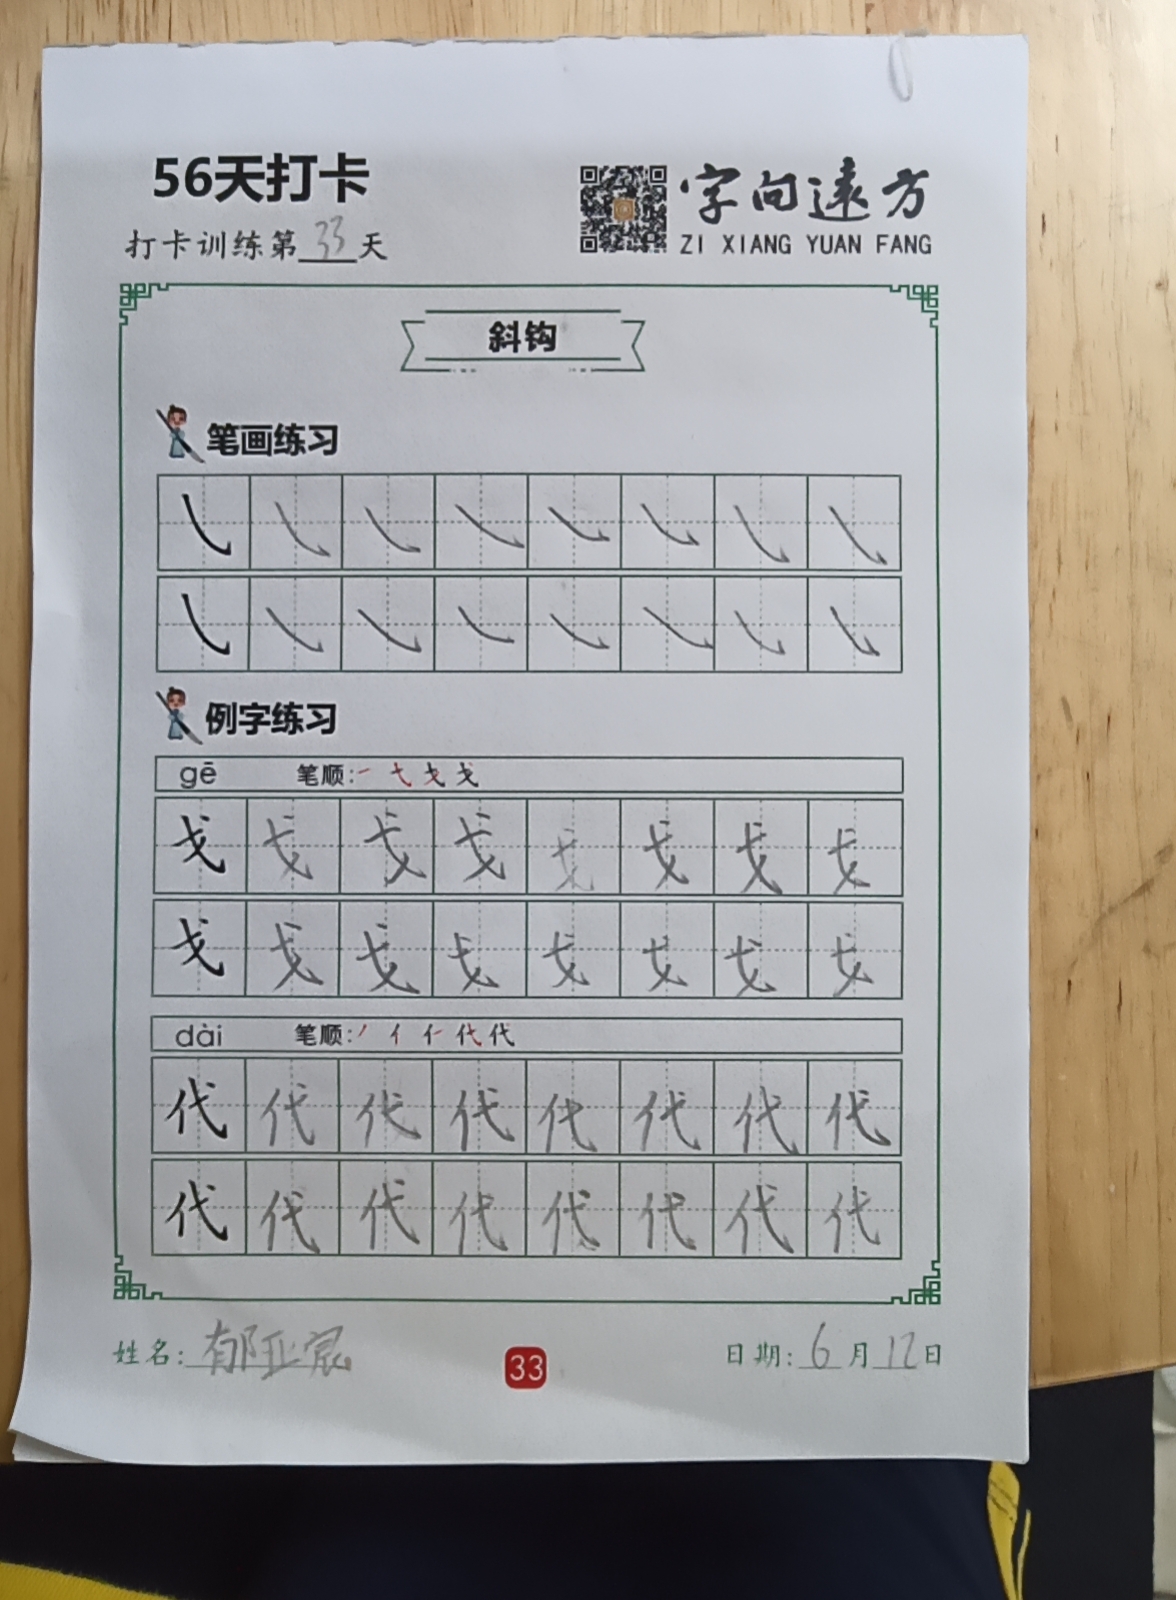 56天打卡
打卡训练第33天
字向遠方
ZI XIANG YUAN FANG
斜钩
笔画练习
例字练习
gē 笔顺:
戈 戈 戈 戈 戈 戈 戈 戈
戈 戈 戈 戈 戈 戈 戈 戈
dài 笔顺:
代 代 代 代 代 代 代 代
代 代 代 代 代 代 代 代
姓名:郁亚宸
33
日期:6月12日